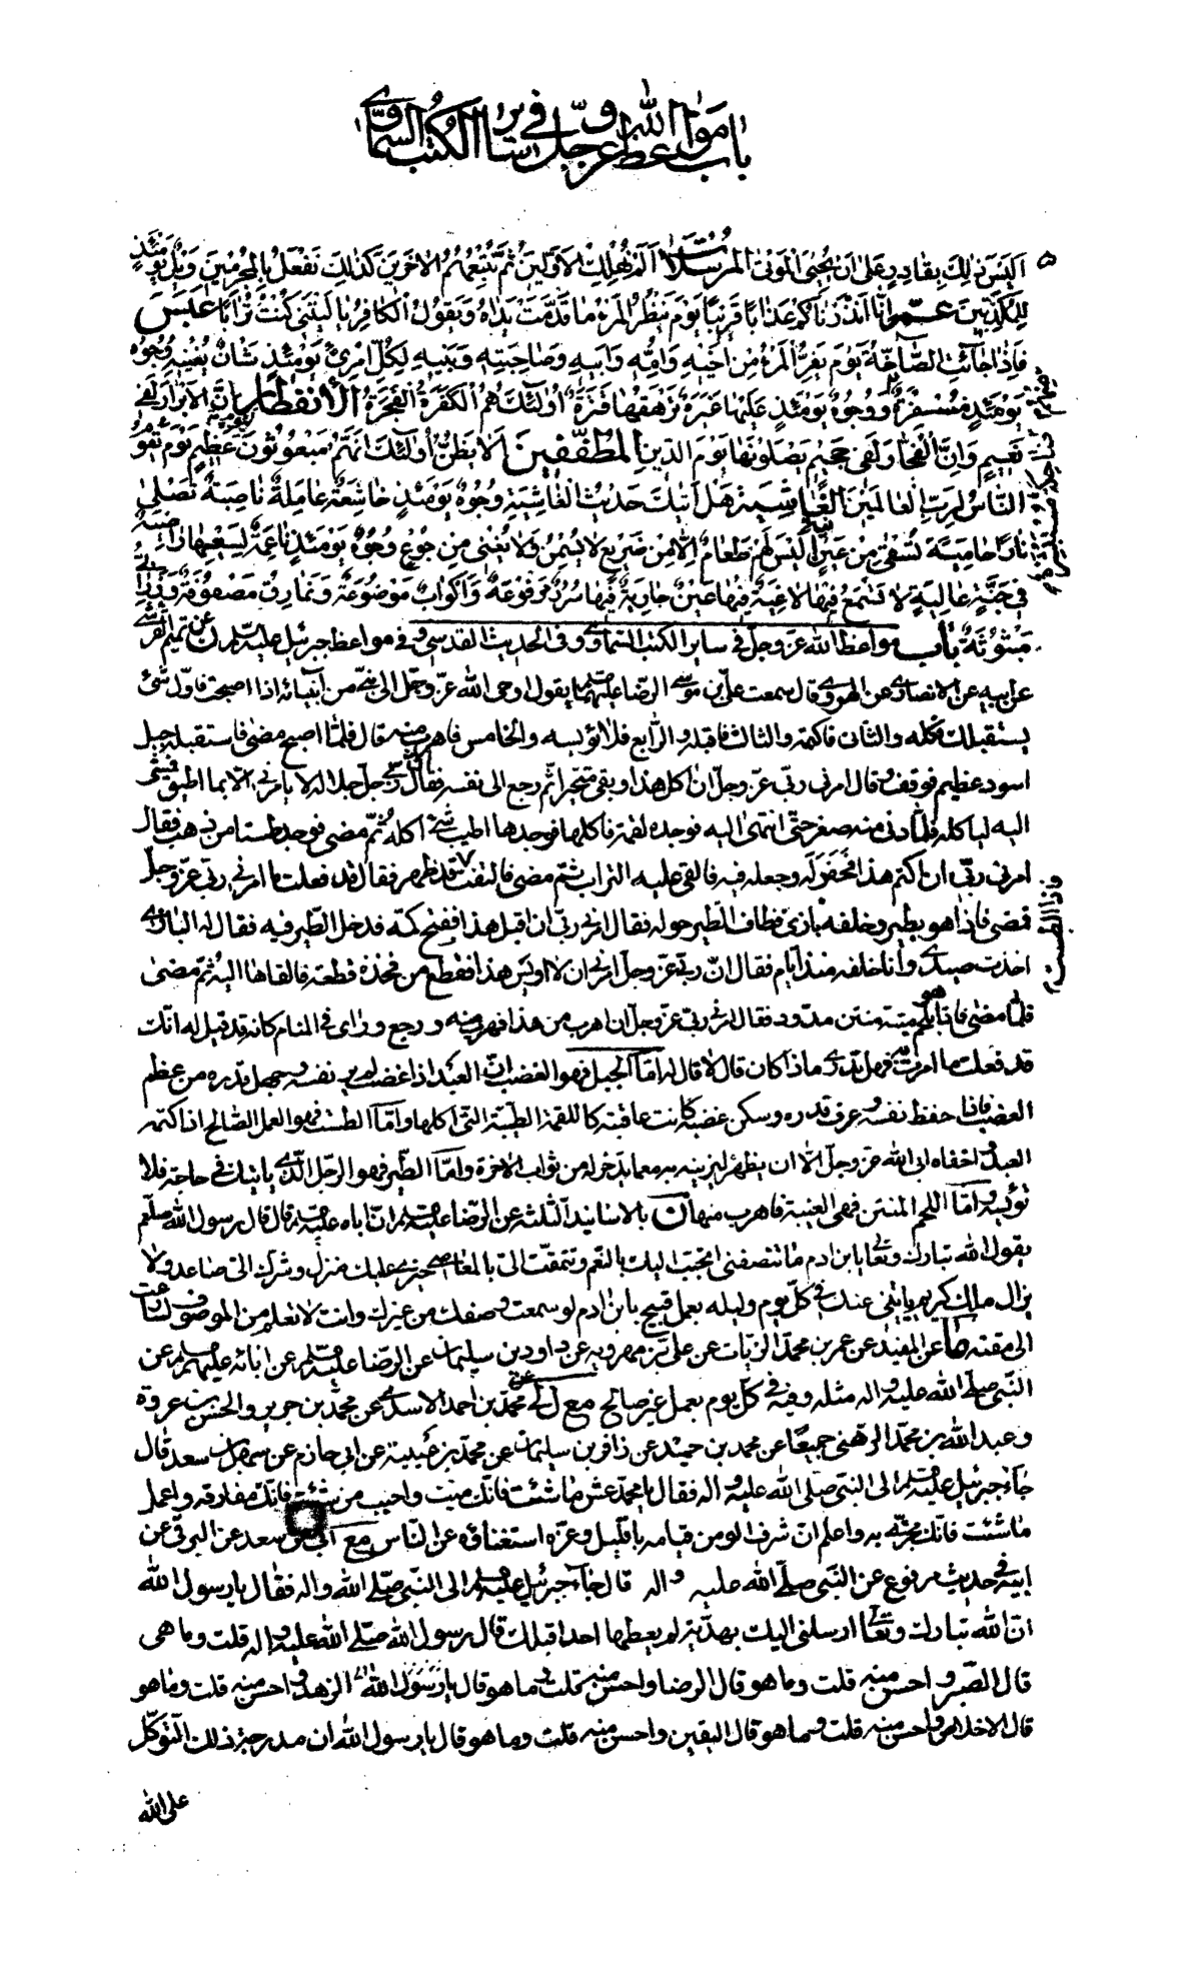 باب مواعظ الله عز وجل في سائر الكتب السماوي
اَلَيْسَ ذٰلِكَ بِقَادِرٍ عَلىٰ اَنْ يُحْيِىَ الْمَوْتىٰ المرسلات اَلَمْ نُهْلِكِ الْاَوَّلِينَ ثُمَّ نُتْبِعُهُمُ الْاٰخِرِينَ كَذٰلِكَ نَفْعَلُ بِالْمُجْرِمِينَ وَيْلٌ يَوْمَئِذٍ
لِلْمُكَذِّبِينَ عم اِنَّا اَنْذَرْنَاكُمْ عَذَابًا قَرِيبًا يَوْمَ يَنْظُرُ الْمَرْءُ مَا قَدَّمَتْ يَدَاهُ وَيَقُولُ الْكَافِرُ يَا لَيْتَنِي كُنْتُ تُرَابًا عبس
فَاِذَا جَائَتِ الصَّاخَّةُ يَوْمَ يَفِرُّ الْمَرْءُ مِنْ اَخِيهِ وَاُمِّهِ وَاَبِيهِ وَصَاحِبَتِهِ وَبَنِيهِ لِكُلِّ امْرِئٍ يَوْمَئِذٍ شَاْنٌ يُغْنِيهِ وُجُوهٌ
يَوْمَئِذٍ مُسْفِرَةٌ وَوُجُوهٌ يَوْمَئِذٍ عَلَيْهَا غَبَرَةٌ تَرْهَقُهَا قَتَرَةٌ اُولٰئِكَ هُمُ الْكَفَرَةُ الْفَجَرَةُ الانفطار اِنَّ الْاَبْرَارَ لَفِي
نَعِيمٍ وَاِنَّ الْفُجَّارَ لَفِي جَحِيمٍ يَصْلَوْنَهَا يَوْمَ الدِّينِ المطففين اَلَا يَظُنُّ اُولٰئِكَ اَنَّهُمْ مَبْعُوثُونَ لِيَوْمٍ عَظِيمٍ يَوْمَ يَقُومُ
النَّاسُ لِرَبِّ الْعَالَمِينَ الغاشية هَلْ اَتٰيكَ حَدِيثُ الْغَاشِيَةِ وُجُوهٌ يَوْمَئِذٍ خَاشِعَةٌ عَامِلَةٌ نَاصِبَةٌ تَصْلىٰ
نَارًا حَامِيَةً تُسْقىٰ مِنْ عَيْنٍ اٰنِيَةٍ لَيْسَ لَهُمْ طَعَامٌ اِلَّا مِنْ ضَرِيعٍ لَا يُسْمِنُ وَلَا يُغْنِي مِنْ جُوعٍ وُجُوهٌ يَوْمَئِذٍ نَاعِمَةٌ لِسَعْيِهَا رَاضِيَةٌ
فِي جَنَّةٍ عَالِيَةٍ لَا تَسْمَعُ فِيهَا لَاغِيَةً فِيهَا عَيْنٌ جَارِيَةٌ فِيهَا سُرُرٌ مَرْفُوعَةٌ وَاَكْوَابٌ مَوْضُوعَةٌ وَنَمَارِقُ مَصْفُوفَةٌ وَزَرَابِيُّ
مَبْثُوثَةٌ باب مواعظ الله عز وجل في ساير الكتب السماوي وفي الحديث القدسي وفي مواعظ جبرئيل عليه السلم ن عن تميم القرشي
عن ابيه عن الانصاري عن الهروي قال سمعت علي بن موسى الرضا عليهما يقول اوحى الله عز وجل الى نبي من انبيائه اذا اصبحت فاول شئ
يستقبلك فكله والثاني فاكتمه والثالث فاقبله والرابع فلا تؤيسه والخامس فاهرب منه قال فلما اصبح مضى فاستقبله جبل
اسود عظيم فوقف وقال امرني ربي عز وجل ان اكل هذا وبقي متحيرا ثم رجع الى نفسه فقال ان ربي جل جلاله لا يامرني الا بما اطيق فمشى
اليه لياكله فلما دنى منه صغر حتى انتهى اليه فوجده لقمة فاكلها فوجدها اطيب شئ اكله ثم مضى فوجد طستا من ذهب فقال
امرني ربي ان اكتم هذا فحفر له وجعله فيه فالقى عليه التراب ثم مضى فالتفت قد ظهر فقال قد فعلت ما امرني ربي عز وجل
فمضى فاذا هو بطير وخلفه بازي فطاف الطير حوله فقال امرني ربي ان اقبل هذا ففتح كمه فدخل الطير فيه فقال له البازي
اخذت صيدي وانا خلفه منذ ايام فقال ان ربي عز وجل امرني ان لا اويس هذا فقطع من فخذه قطعة فالقاها اليه ثم مضى
فلما مضى فاذا هو بلحم ميتة منتن مدود فقال امرني ربي عز وجل ان اهرب من هذا فهرب منه ورجع وراى في المنام كانه قد قيل له انك
قد فعلت ما امرت به فهل تدري ماذا كان قال لا قال له اما الجبل فهو الغضب ان العبد اذا غضب لم ير نفسه وجهل قدره من عظم
الغضب فاذا حفظ نفسه وعرف قدره وسكن غضبه كانت عاقبته كاللقمة الطيبة التي اكلها واما الطست فهو العمل الصالح اذا كتمه
العبد واخفاه ابى الله عز وجل الا ان يظهره ليزينه به مع ما يدخر له من ثواب الاخرة واما الطير فهو الرجل الذي ياتيك في حاجة فلا
تؤيسه واما اللحم المنتن فهي الغيبة فاهرب منها ن بالاسانيد الثلثة عن الرضا عليه السلم عن اباه عليهم قال قال رسول الله صلعم
يقول الله تبارك وتعالى يا ابن ادم ما تنصفني اتحبب اليك بالنعم وتتمقت الي بالمعاصي خيري عليك منزل وشرك الي صاعد ولا
يزال ملك كريم ياتيني عنك في كل يوم وليلة بعمل قبيح يا ابن ادم لو سمعت وصفك من غيرك وانت لا تعلم من الموصوف لسارعت
الى مقته ما عن المفيد عن عمر بن محمد الزيات عن علي بن مهرويه عن داود بن سليمان عن الرضا عليه السلم عن ابائه عليهم السلم عن
النبي صلى الله عليه واله مثله وفيه في كل يوم بعمل غير صالح مع ل لي محمد بن احمد الاسدي عن محمد بن جرير والحسن بن عروة
وعبد الله بن محمد الوهبي جميعا عن محمد بن حميد عن زافر بن سليمان عن محمد بن عيينة عن ابي حازم عن سهل بن سعد قال
جاء جبرئيل عليه السلم الى النبي صلى الله عليه واله فقال يا محمد عش ما شئت فانك ميت واحبب من شئت فانك مفارقه واعمل
ما شئت فانك مجزي به واعلم ان شرف المومن قيامه بالليل وعزه استغناؤه عن الناس مع ابي عن سعد عن البرقي عن
ابيه في حديث مرفوع عن النبي صلى الله عليه واله قال جاء جبرئيل عليه السلم الى النبي صلى الله عليه واله فقال يا رسول الله
ان الله تبارك وتعالى ارسلني اليك بهدية لم يعطها احدا قبلك قال رسول الله صلى الله عليه واله قلت وما هي
قال الصبر واحسن منه قلت وما هو قال الرضا واحسن منه قلت وما هو قال يا رسول الله الزهد واحسن منه قلت وما هو
قال الاخلاص واحسن منه قلت وما هو قال اليقين واحسن منه قلت وما هو قال يا رسول الله ان مدرجة ذلك التوكل
على الله